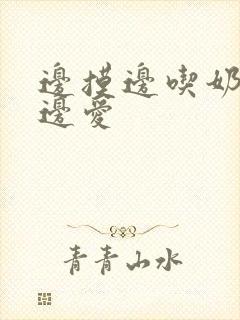 邊摸邊喫奶
邊愛
青青山水